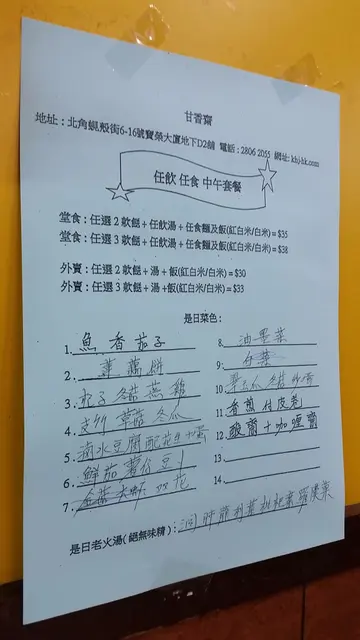 甘香齋
地址：北角蜆殼街6-16號寶榮大廈地下D2舖 電話：2806 2055 網址: khj-hk.com
任飲 任食 中午套餐
堂食：任選 2 款餸 + 任飲湯 + 任食麵及飯(紅白米/白米) = $35
堂食：任選 3 款餸 + 任飲湯 + 任食麵及飯(紅白米/白米) = $38
外賣：任選 2 款餸 + 湯 + 飯(紅白米/白米) = $30
外賣：任選 3 款餸 + 湯 +飯(紅白米/白米) = $33
是日菜色：
1. 魚香茄子
2. 蓮藕餅
3. 杞子冬菇蒸
4. 支竹草菇冬瓜
5. 滷水豆腐配花生+蛋
6. 鮮茄薯仔豆
7. 花
8. 油墨菜
9. 白菜
10.
11. 香煎付皮卷
12. 酸齋+咖喱齋
13.
14.
是日老火湯(絕無味精)：